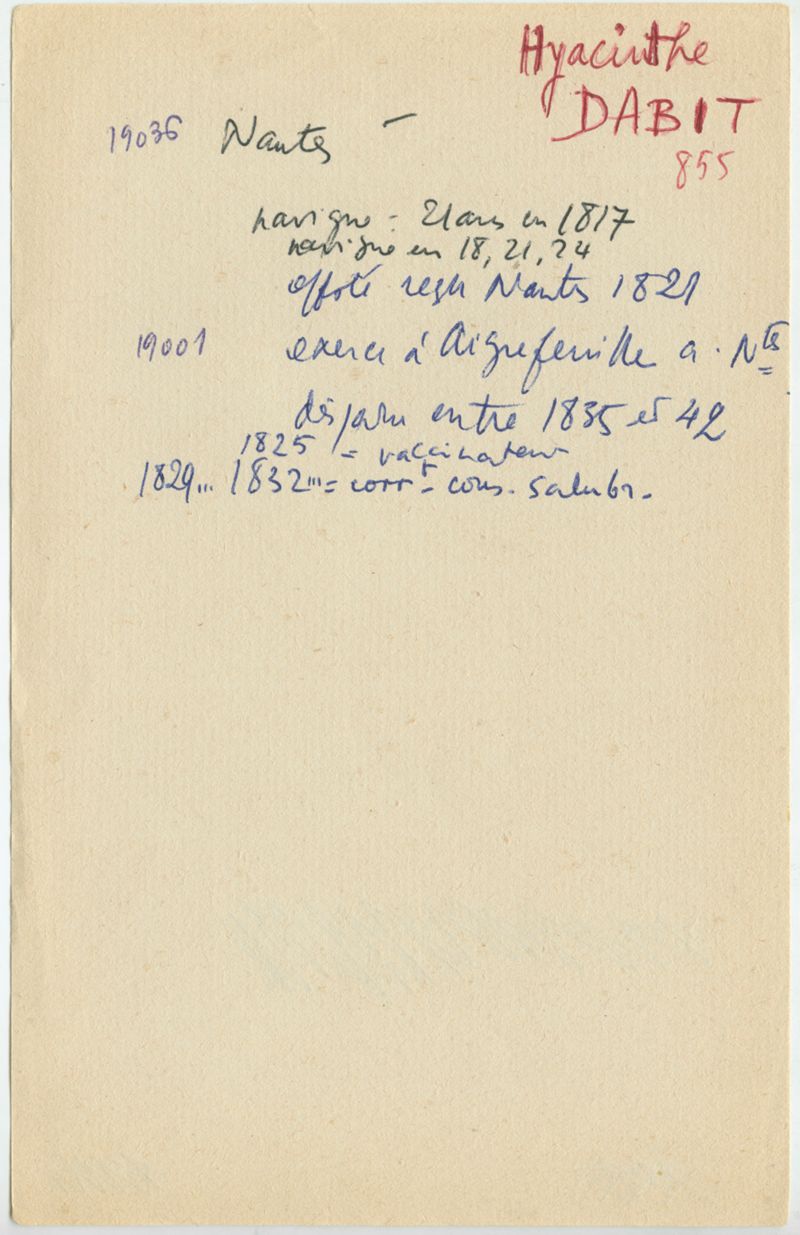 Hyacinthe
DABIT
855
19036 Nantes -
navigue = 21 ans en 1817
navigue en 18, 21, 24
Nantes 1821
19001 exerce à Aigrefeuille a. Ntes
disparu entre 1835 et 42
1825 = vaccinateur
1829... 1832... = corrt = cons. salubr.